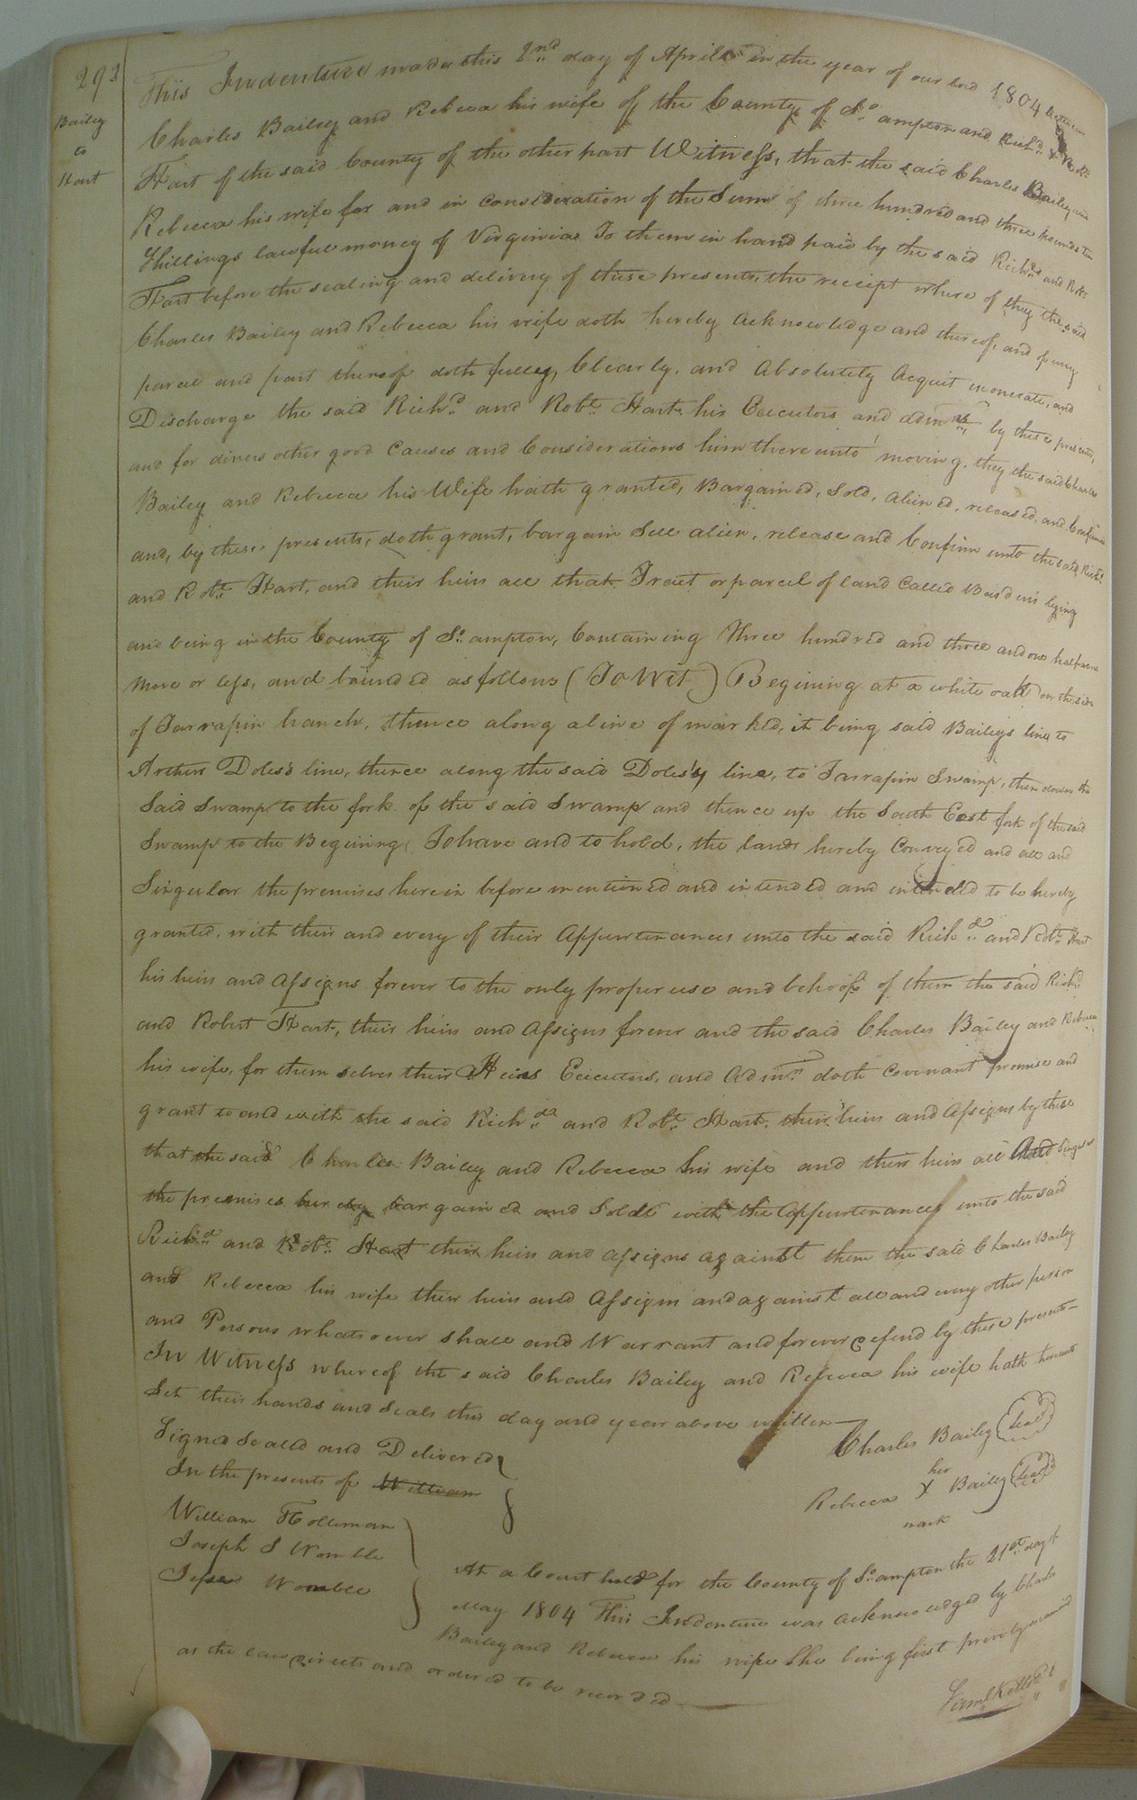 293
Bailey
to
Hart
This Indenture made this 2nd day of April in the year of our Lord 1804 Between
Charles Bailey and Rebecca his wife of the County of So.ampton and Richd. & Robt.
Hart of the said County of the other part Witness, that the said Charles Bailey and
Rebecca his wife for and in consideration of the Sum of three hundred and three pounds ten
Shillings lawful money of Virginia To them in hand paid by the said Richd. and Robt.
Hart before the sealing and delivery of these presents, the receipt where of they the said
Charles Bailey and Rebecca his wife doth hereby acknowledge and thereof, and of every
parcel and part thereof doth fully, Clearly, and Absolutely Acquit exonerate, and
Discharge the said Richd. and Robt. Hart his Executors and admrs. by these presents,
and for divers other good Causes and Considerations him there unto moving, they the said Charles
Bailey and Rebecca his Wife hath granted, Bargained, Sold, aliened, released, and Confirmed
and, by these presents, doth grant, bargain Sell alien, release and Confirm unto the said Richd.
and Robt. Hart, and their heirs all that Tract or parcel of land Called Bardens lying
and being in the County of So.ampton, Containing Three hundred and three and one half acres
more or less, and bounded as follows (To Wit) Begining at a white oak on the side
of Tarrapin branch, thence along a line of marked, it being said Baileys line to
Arthur Doles's line, thence along the said Doles's line, to Tarrapin Swamp, then down the
Said Swamp to the fork of the said Swamp and thence up the South East fork of the said
Swamp to the Begining To have and to hold, the lands hereby Conveyed and all and
Singular the premises herein before mentioned and intended and intended to be hereby
granted, with their and every of their Appurtenances unto the said Richd. and Robt. Hart
his heirs and assigns forever to the only proper use and behoof of them the said Richd.
and Robert Hart, their heirs and Assigns forever and the said Charles Bailey and Rebecca
his wife, for them selves their Heirs Executors, and Admrs. doth Covenant promise and
grant to and with the said Richd. and Robt. Hart, their heirs and Assigns by these
that the said Charles Bailey and Rebecca his wife and their heirs all And Singular
the premises hereby bargained and Sold with the Appurtenances unto the said
Richd. and Robt. Hart their heirs and assigns against them the said Charles Bailey
and Rebecca his wife their heirs and Assigns and against all and every other person
and Persons whatsoever shall and Warrant and forever defend by these presents—
In Witness whereof the said Charles Bailey and Rebecca his wife hath hereunto
Set their hands and Seals this day and year above written—
Signd Seald and Delivered
In the presents of William
William Holleman
Joseph J Womble
Jesse Womble
Charles Bailey (Seal)
her
Rebecca X Bailey (Seal)
mark
At a Court held for the County of So.ampton the 21st day of
May 1804 This Indenture was acknowledged by Charles
Bailey and Rebecca his wife She being first privily examined
as the law directs and ordered to be recorded
Saml Kello